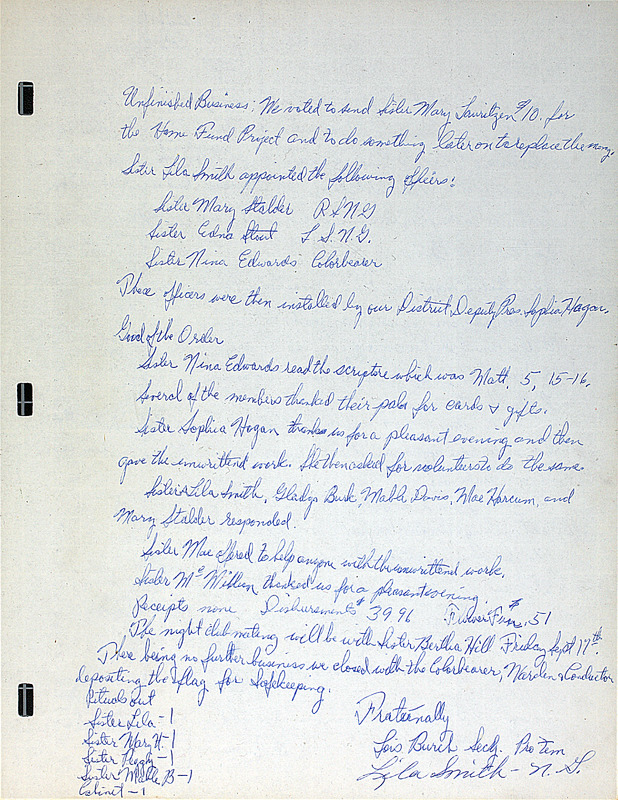 Unfinished Business: We voted to send Sister Mary Lauritzen $10. for
the Home Fund Project and to do something later on to replace the money.
Sister Lila Smith appointed the following officers:
Sister Mary Stalder R.S.N.G
Sister Edna Stout L.S.N.G.
Sister Nina Edwards Colorbearer
These officers were then installed by our District Deputy Pres. Sophia Hagan.
Good of the Order
Sister Nina Edwards read the scripture which was Matt. 5, 15-16.
Several of the members thanked their pals for cards & gifts.
Sister Sophia Hagan thanks us for a pleasant evening and then
gave the unwrittend work. She then asked for volunters to do the same.
Sisters Lila Smith, Gladys Burk, Mable Davis, Mae Harcum, and
Mary Stalder responded.
Sister Mae offered to help anyone with the unwrittend work.
Sister McMillen thanked us for a pleasant evening
Receipts none Disbursements $39.96 Flower Fund $.51
The night club meting will be with Sister Bertha Hill Friday Sept 17th.
There being no further business we closed with the Colorbearer, Warden & Conductor
depositing the flag for safekeeping.
Rituals out
Sister Lila - 1
Sister Mary H. - 1
Sister Peggy - 1
Sister Mable B - 1
Cabinet - 1
Fraternally
Lois Burch Secy. Pro Tem
Lila Smith - N. G.